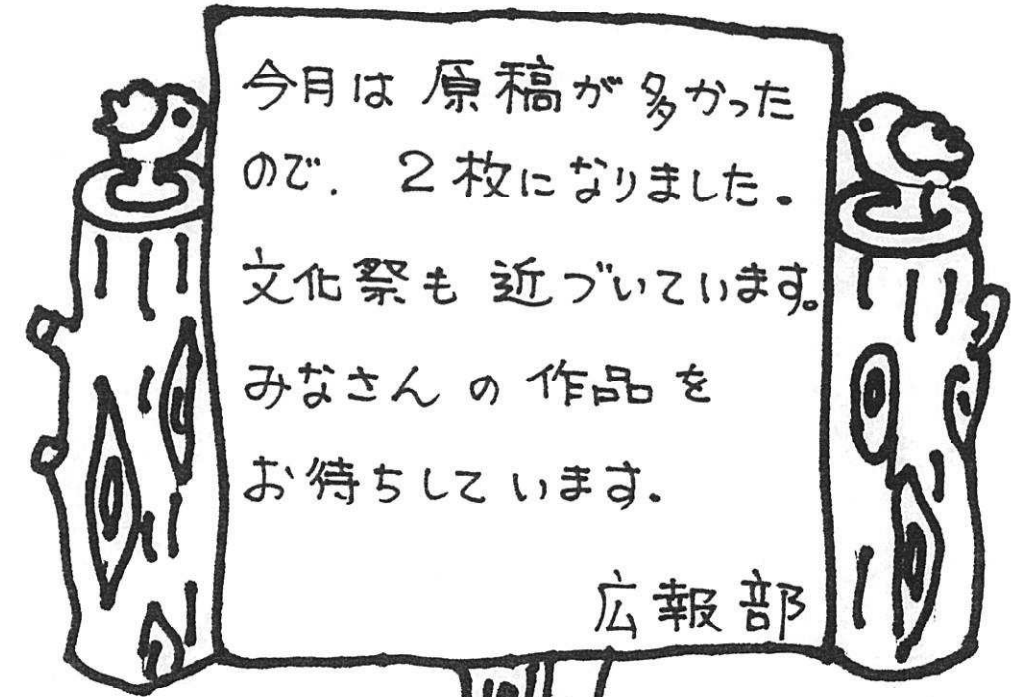 今月は原稿が多かった
ので、2枚になりました。
文化祭も近づいています。
みなさんの作品を
お待ちしています。
広報部